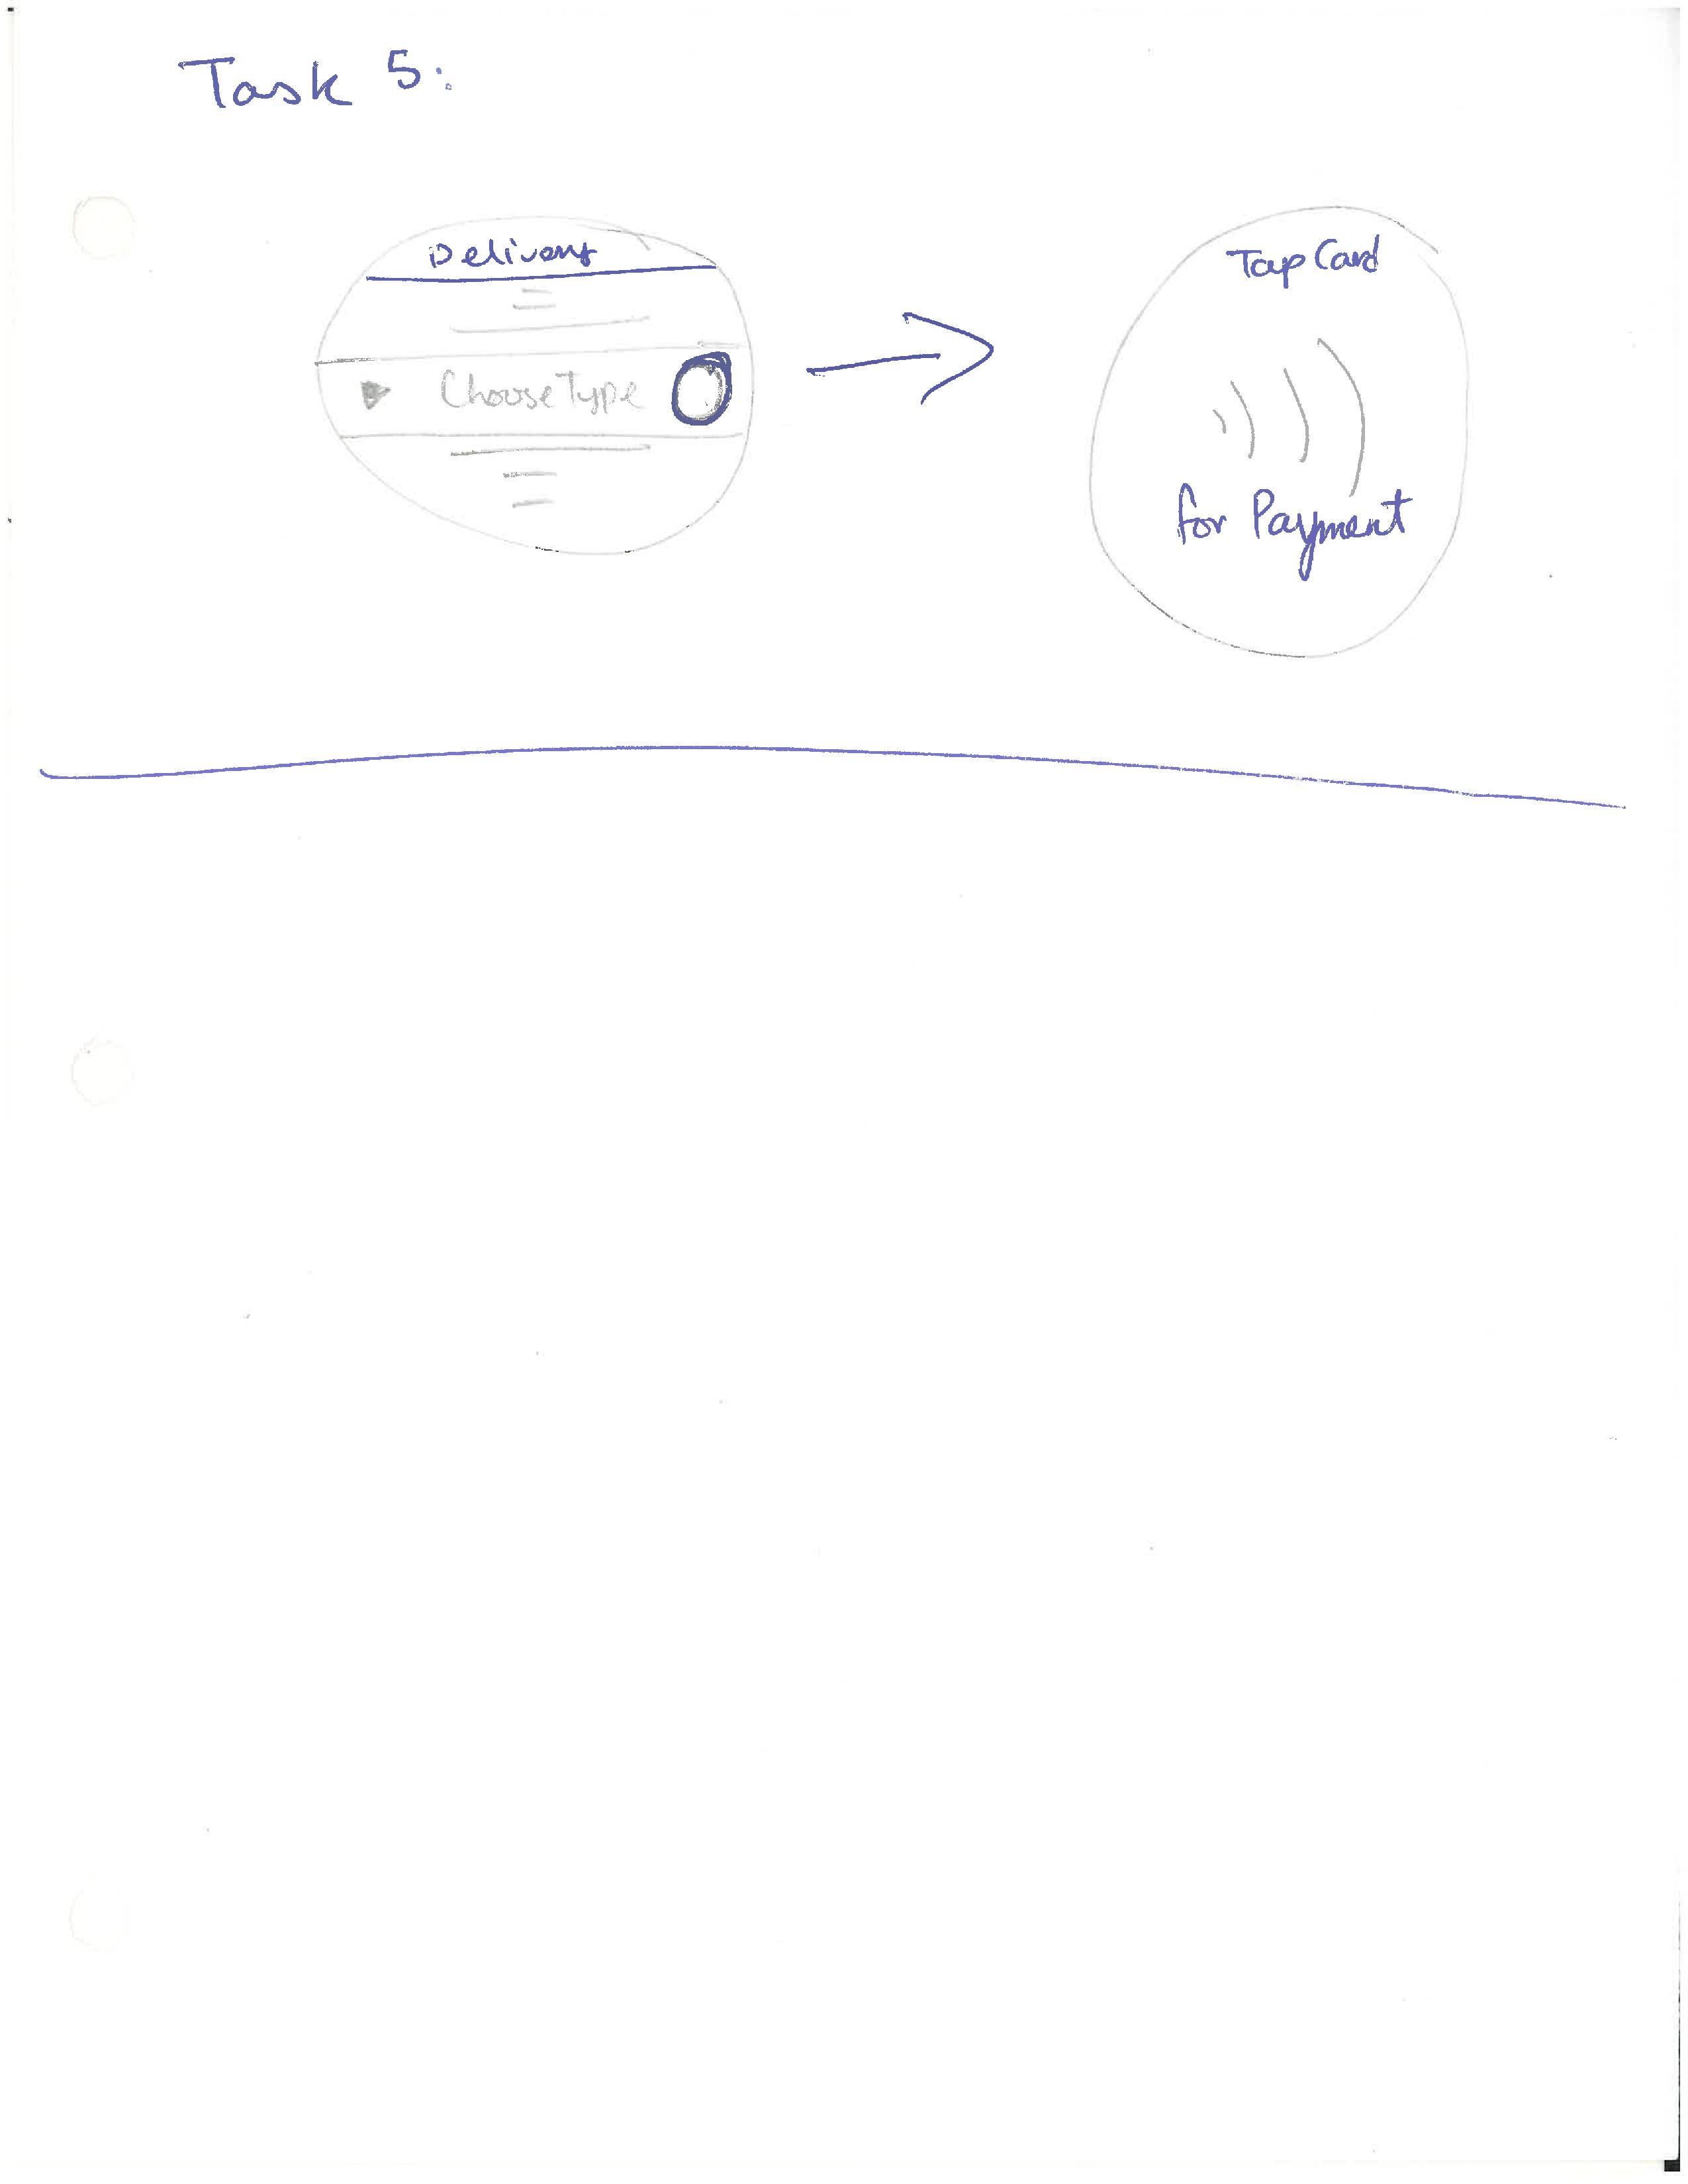 Task 5:
Delivery
Choose Type
Tap Card
for Payment